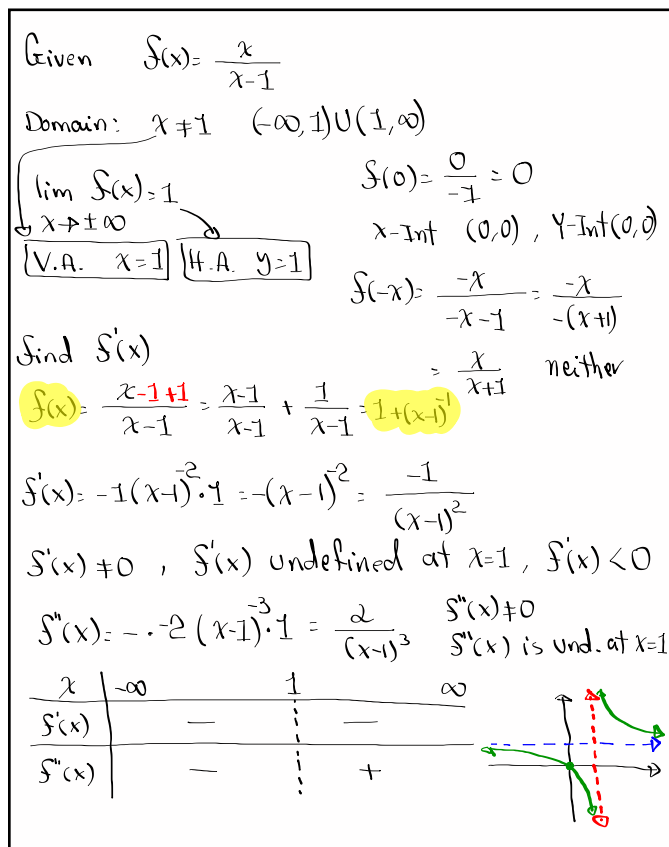 Given f(x)= x/(x-1)
Domain: x≠1 (-∞,1)U(1,∞)
lim f(x)=1
x→±∞
V.A. x=1 H.A. y=1
f(0)= 0/-1 = 0
x-Int (0,0), Y-Int(0,0)
f(-x)= -x/(-x-1) = -x/(-(x+1))
= x/(x+1) neither
find f'(x)
f(x)= (x-1+1)/(x-1) = (x-1)/(x-1) + 1/(x-1) = 1+(x-1)⁻¹
f'(x)= -1(x-1)⁻²·1 = -(x-1)⁻² = -1/(x-1)²
f'(x)≠0, f'(x) undefined at x=1, f'(x)<0
f''(x)= -·-2(x-1)⁻³·1 = 2/(x-1)³
f''(x)≠0
f''(x) is und. at x=1
x -∞ 1 ∞
f'(x) — —
f''(x) — +